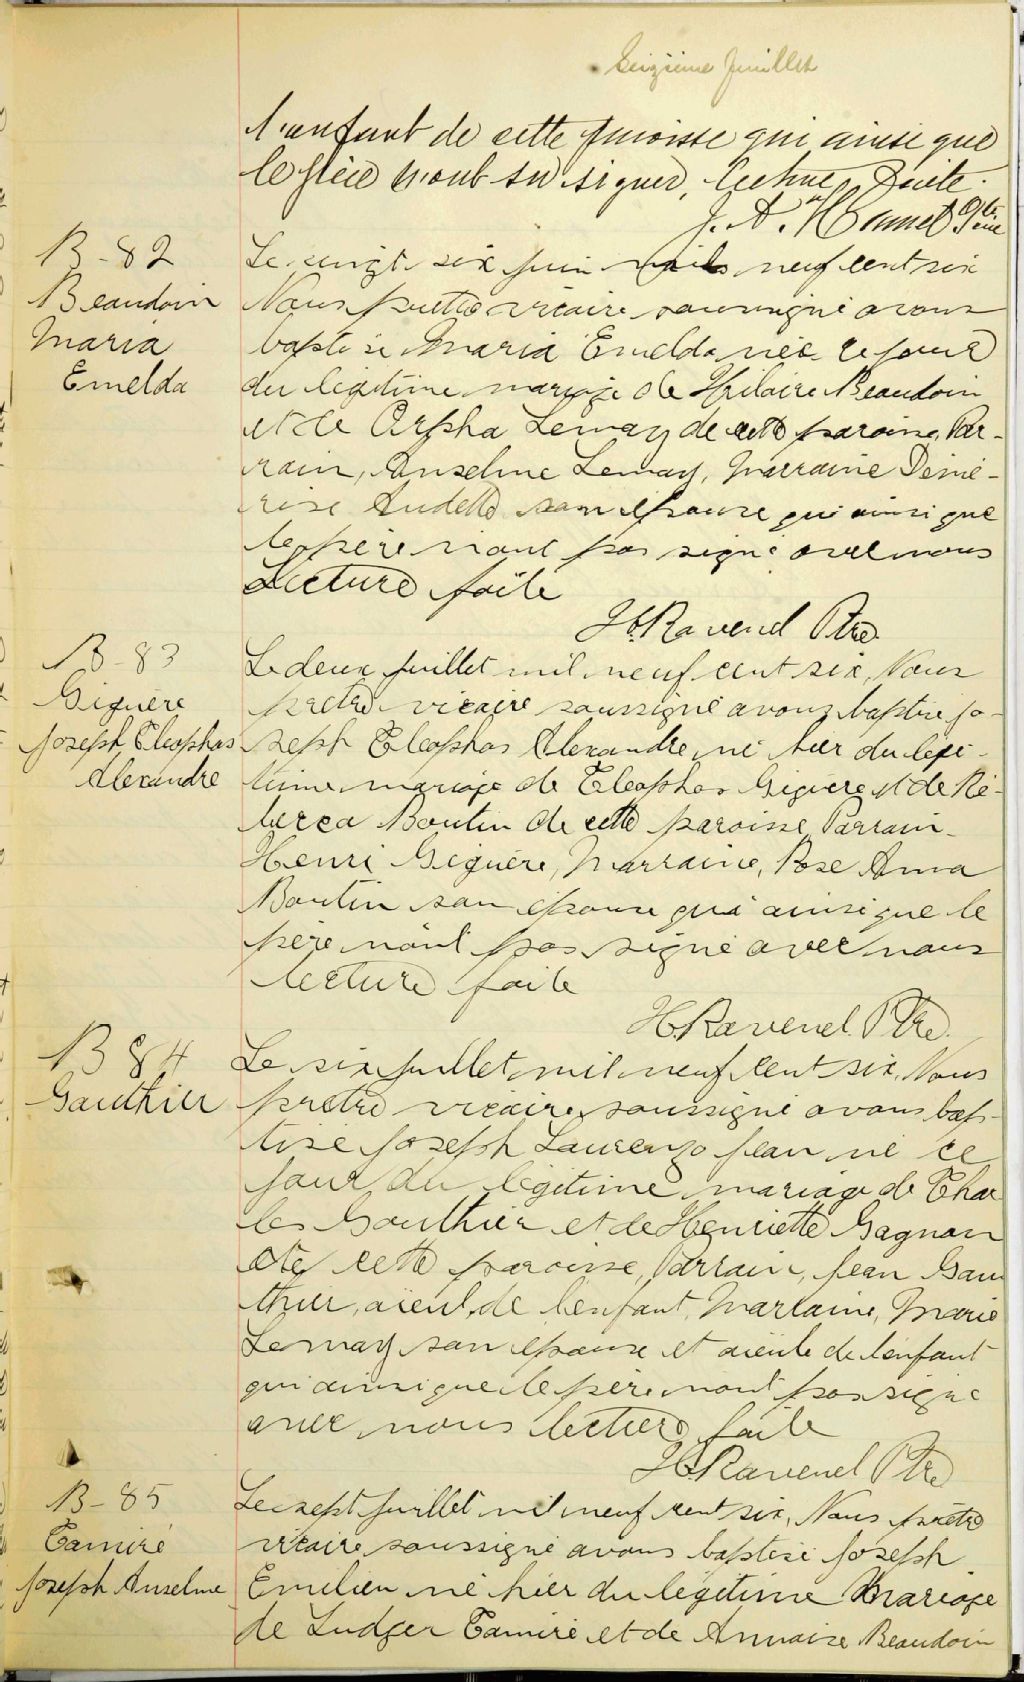 Seizième feuillet
l'enfant de cette paroisse qui ainsi que
le père n'ont su signer, lecture faite.
J. A. Hamel Ptre
B-82
Beaudoin
Maria
Emelda
Le vingt six juin mil neuf cent six
Nous prêtre vicaire soussigné avons
baptisé Maria Emelda née ce jour
du légitime mariage de Hilaire Beaudoin
et de Orpha Lemay de cette paroisse, Par-
rain, Anselme Lemay, Marraine Démé-
rise Audette son épouse qui ainsi que
le père n'ont pas signé avec nous
Lecture faite
H. Ravenel Ptre
B-83
Giguère
Joseph, Cléophas
Alexandre
Le deux juillet mil neuf cent six, Nous
prêtre vicaire soussigné avons baptisé Jo-
seph Cléophas Alexandre né hier du légi-
time mariage de Cléophas Giguère et de Ré-
becca Boutin de cette paroisse, Parrain
Henri Giguère, Marraine, Rose Anna
Boutin son épouse qui ainsi que le
père n'ont pas signé avec nous
lecture faite
H. Ravenel Ptre
B 84
Gauthier
Le six juillet mil neuf cent six, Nous
prêtre vicaire soussigné avons bap-
tisé Joseph Laurenzo Jean né ce
jour du légitime mariage de Char
les Gauthier et de Henriette Gagnon
de cette paroisse, Parrain, Jean Gau
thier, aïeul de l'enfant, Marraine, Marie
Lemay son épouse et aïeule de l'enfant
qui ainsi que le père n'ont pas signé
avec nous lecture faite
H. Ravenel Ptre
B-85
Camiré
Joseph Anselme
Le sept juillet mil neuf cent six, Nous prêtre
vicaire soussigné avons baptisé Joseph
Emilien né hier du légitime Mariage
de Ludger Camiré et de Annaise Beaudoin